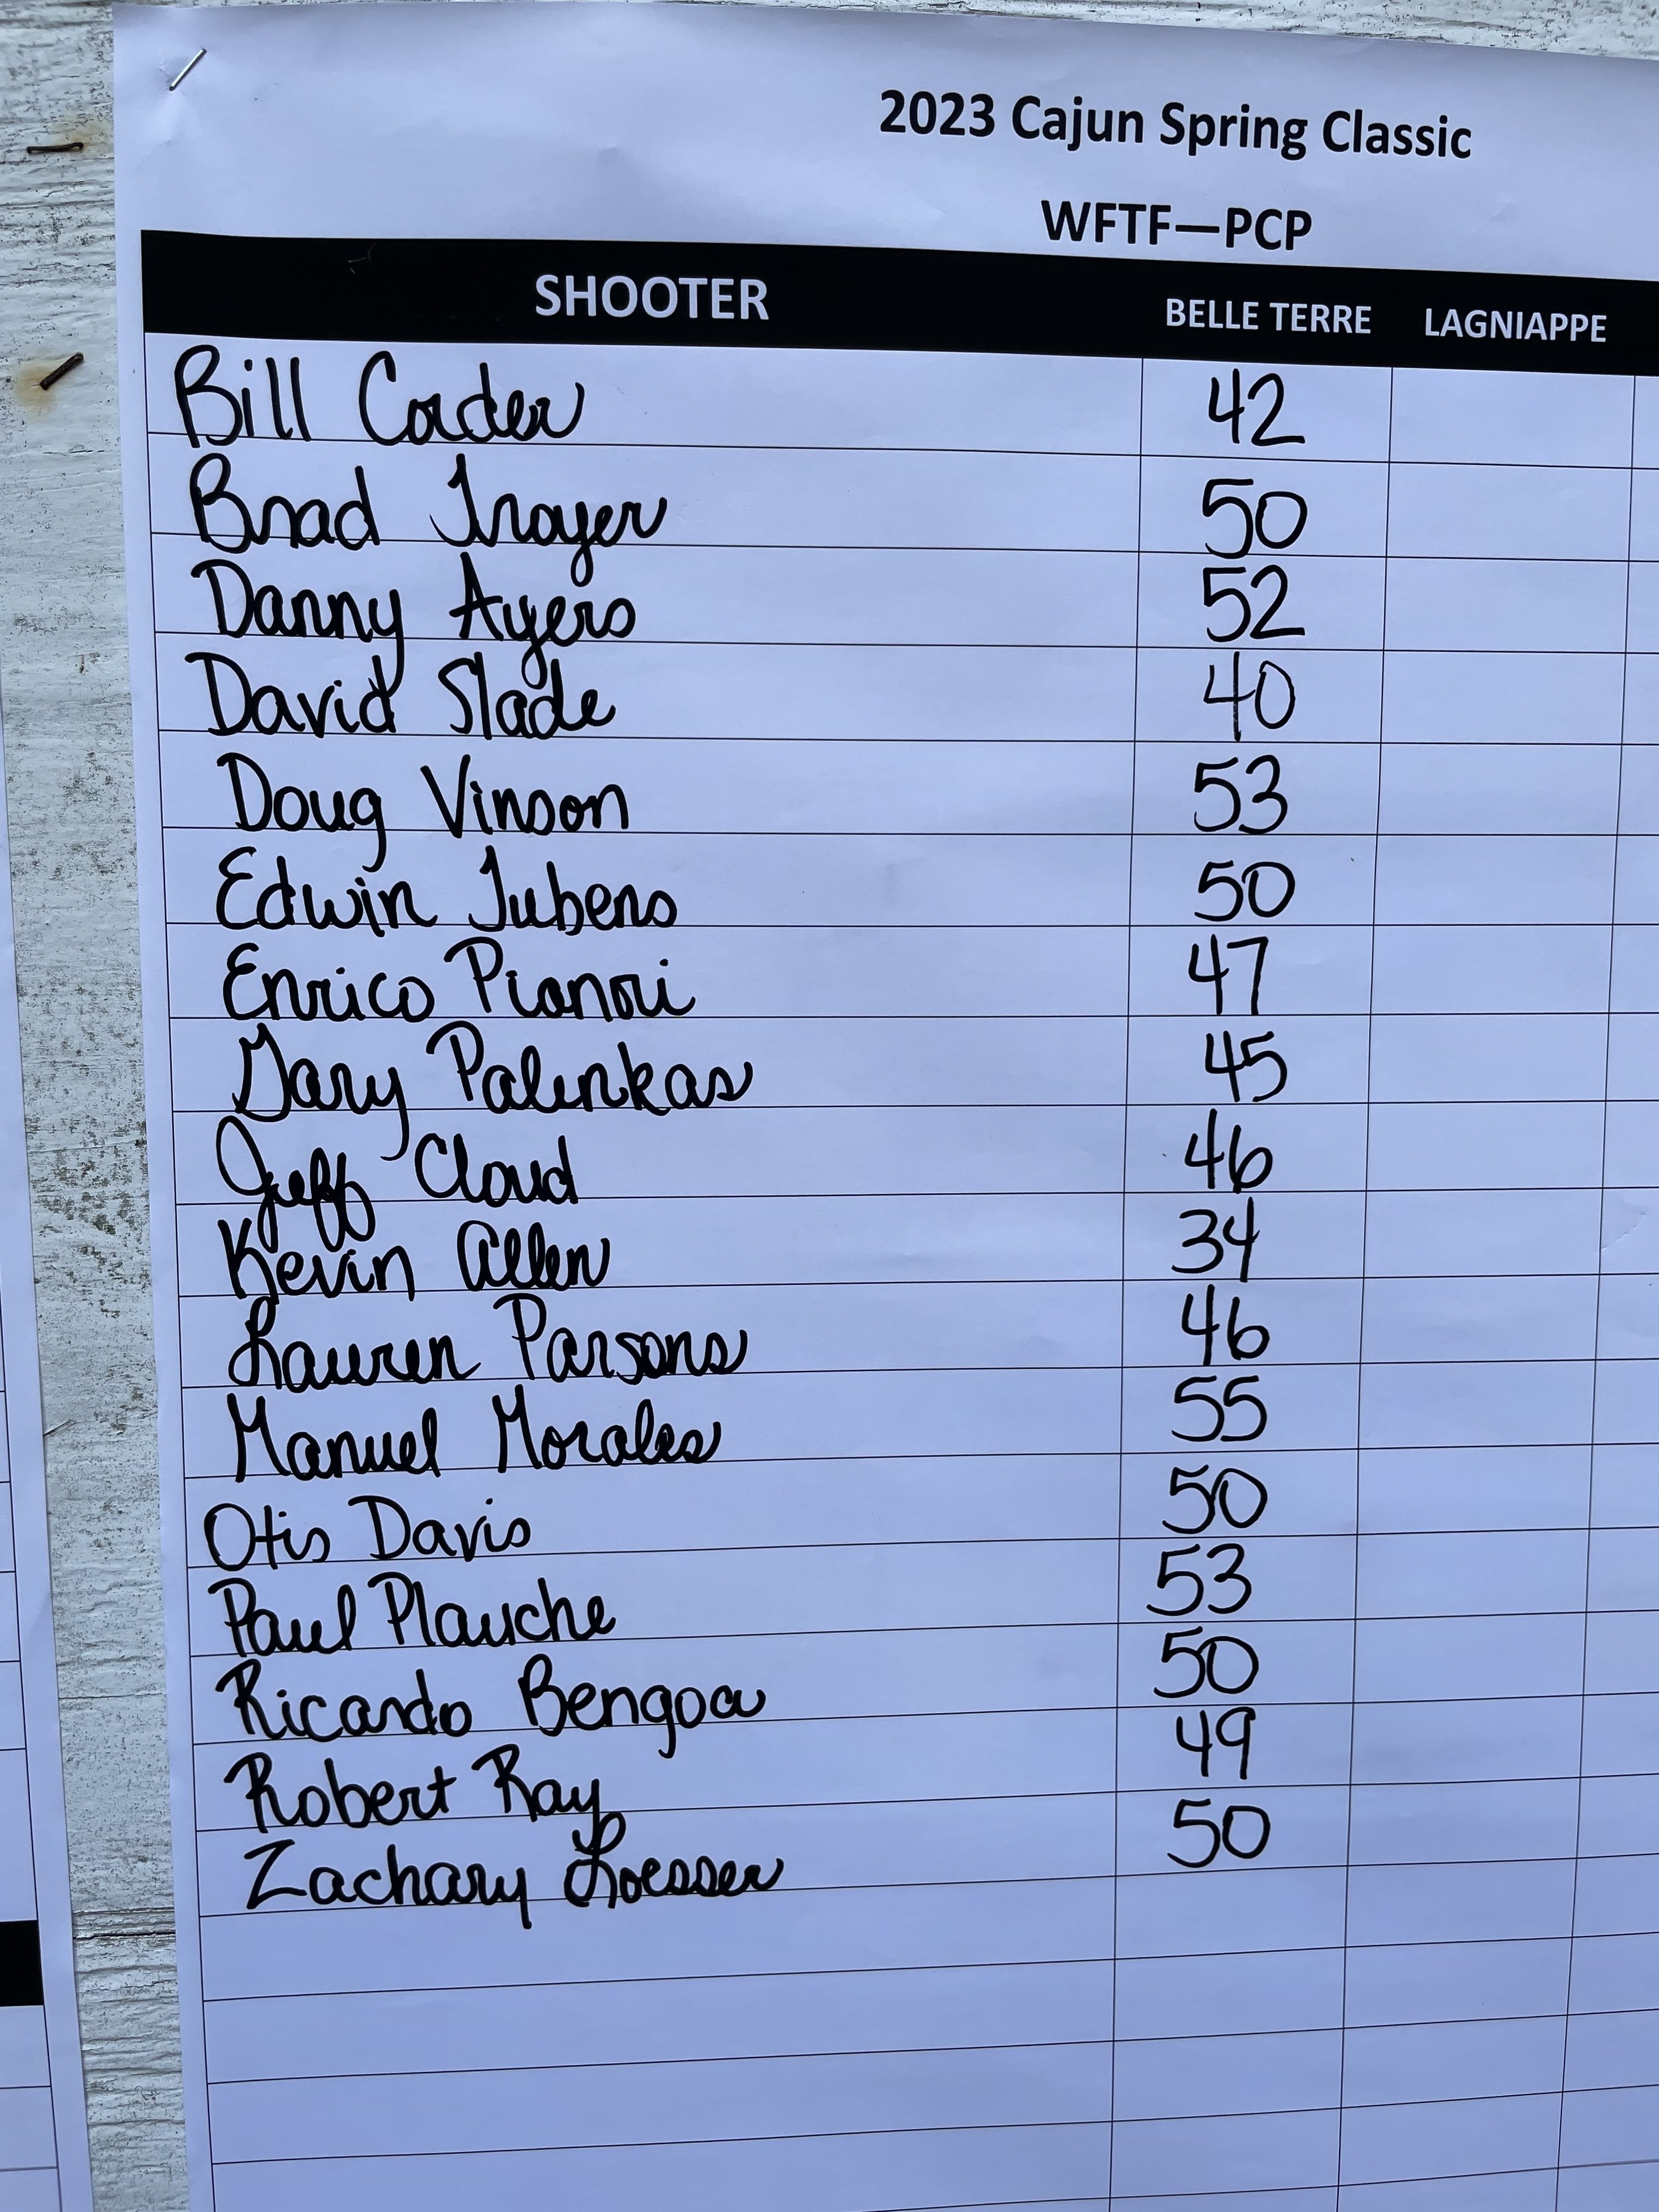 2023 Cajun Spring Classic
WFTF—PCP
SHOOTER BELLE TERRE LAGNIAPPE
Bill Corder 42
Brad Troyer 50
Danny Ayers 52
David Slade 40
Doug Vinson 53
Edwin Jubens 50
Enrico Pianori 47
Gary Palinkas 45
Jeff Cloud 46
Kevin Allen 34
Lauren Parsons 46
Manuel Morales 55
Otis Davis 50
Paul Plauche 53
Ricardo Bengoa 50
Robert Ray 49
Zachary Loesser 50